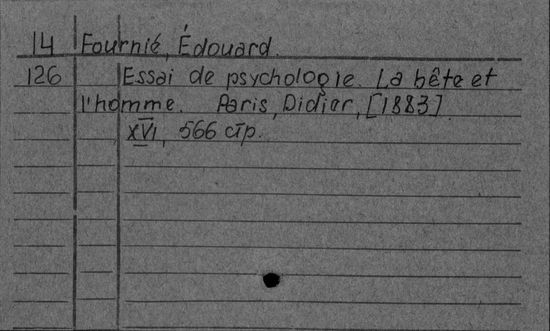 14 Fournié, Édouard.
126 Essai de psychologie. La bête et
l'homme. Paris, Didier, [1883]
XVI, 566 стр.